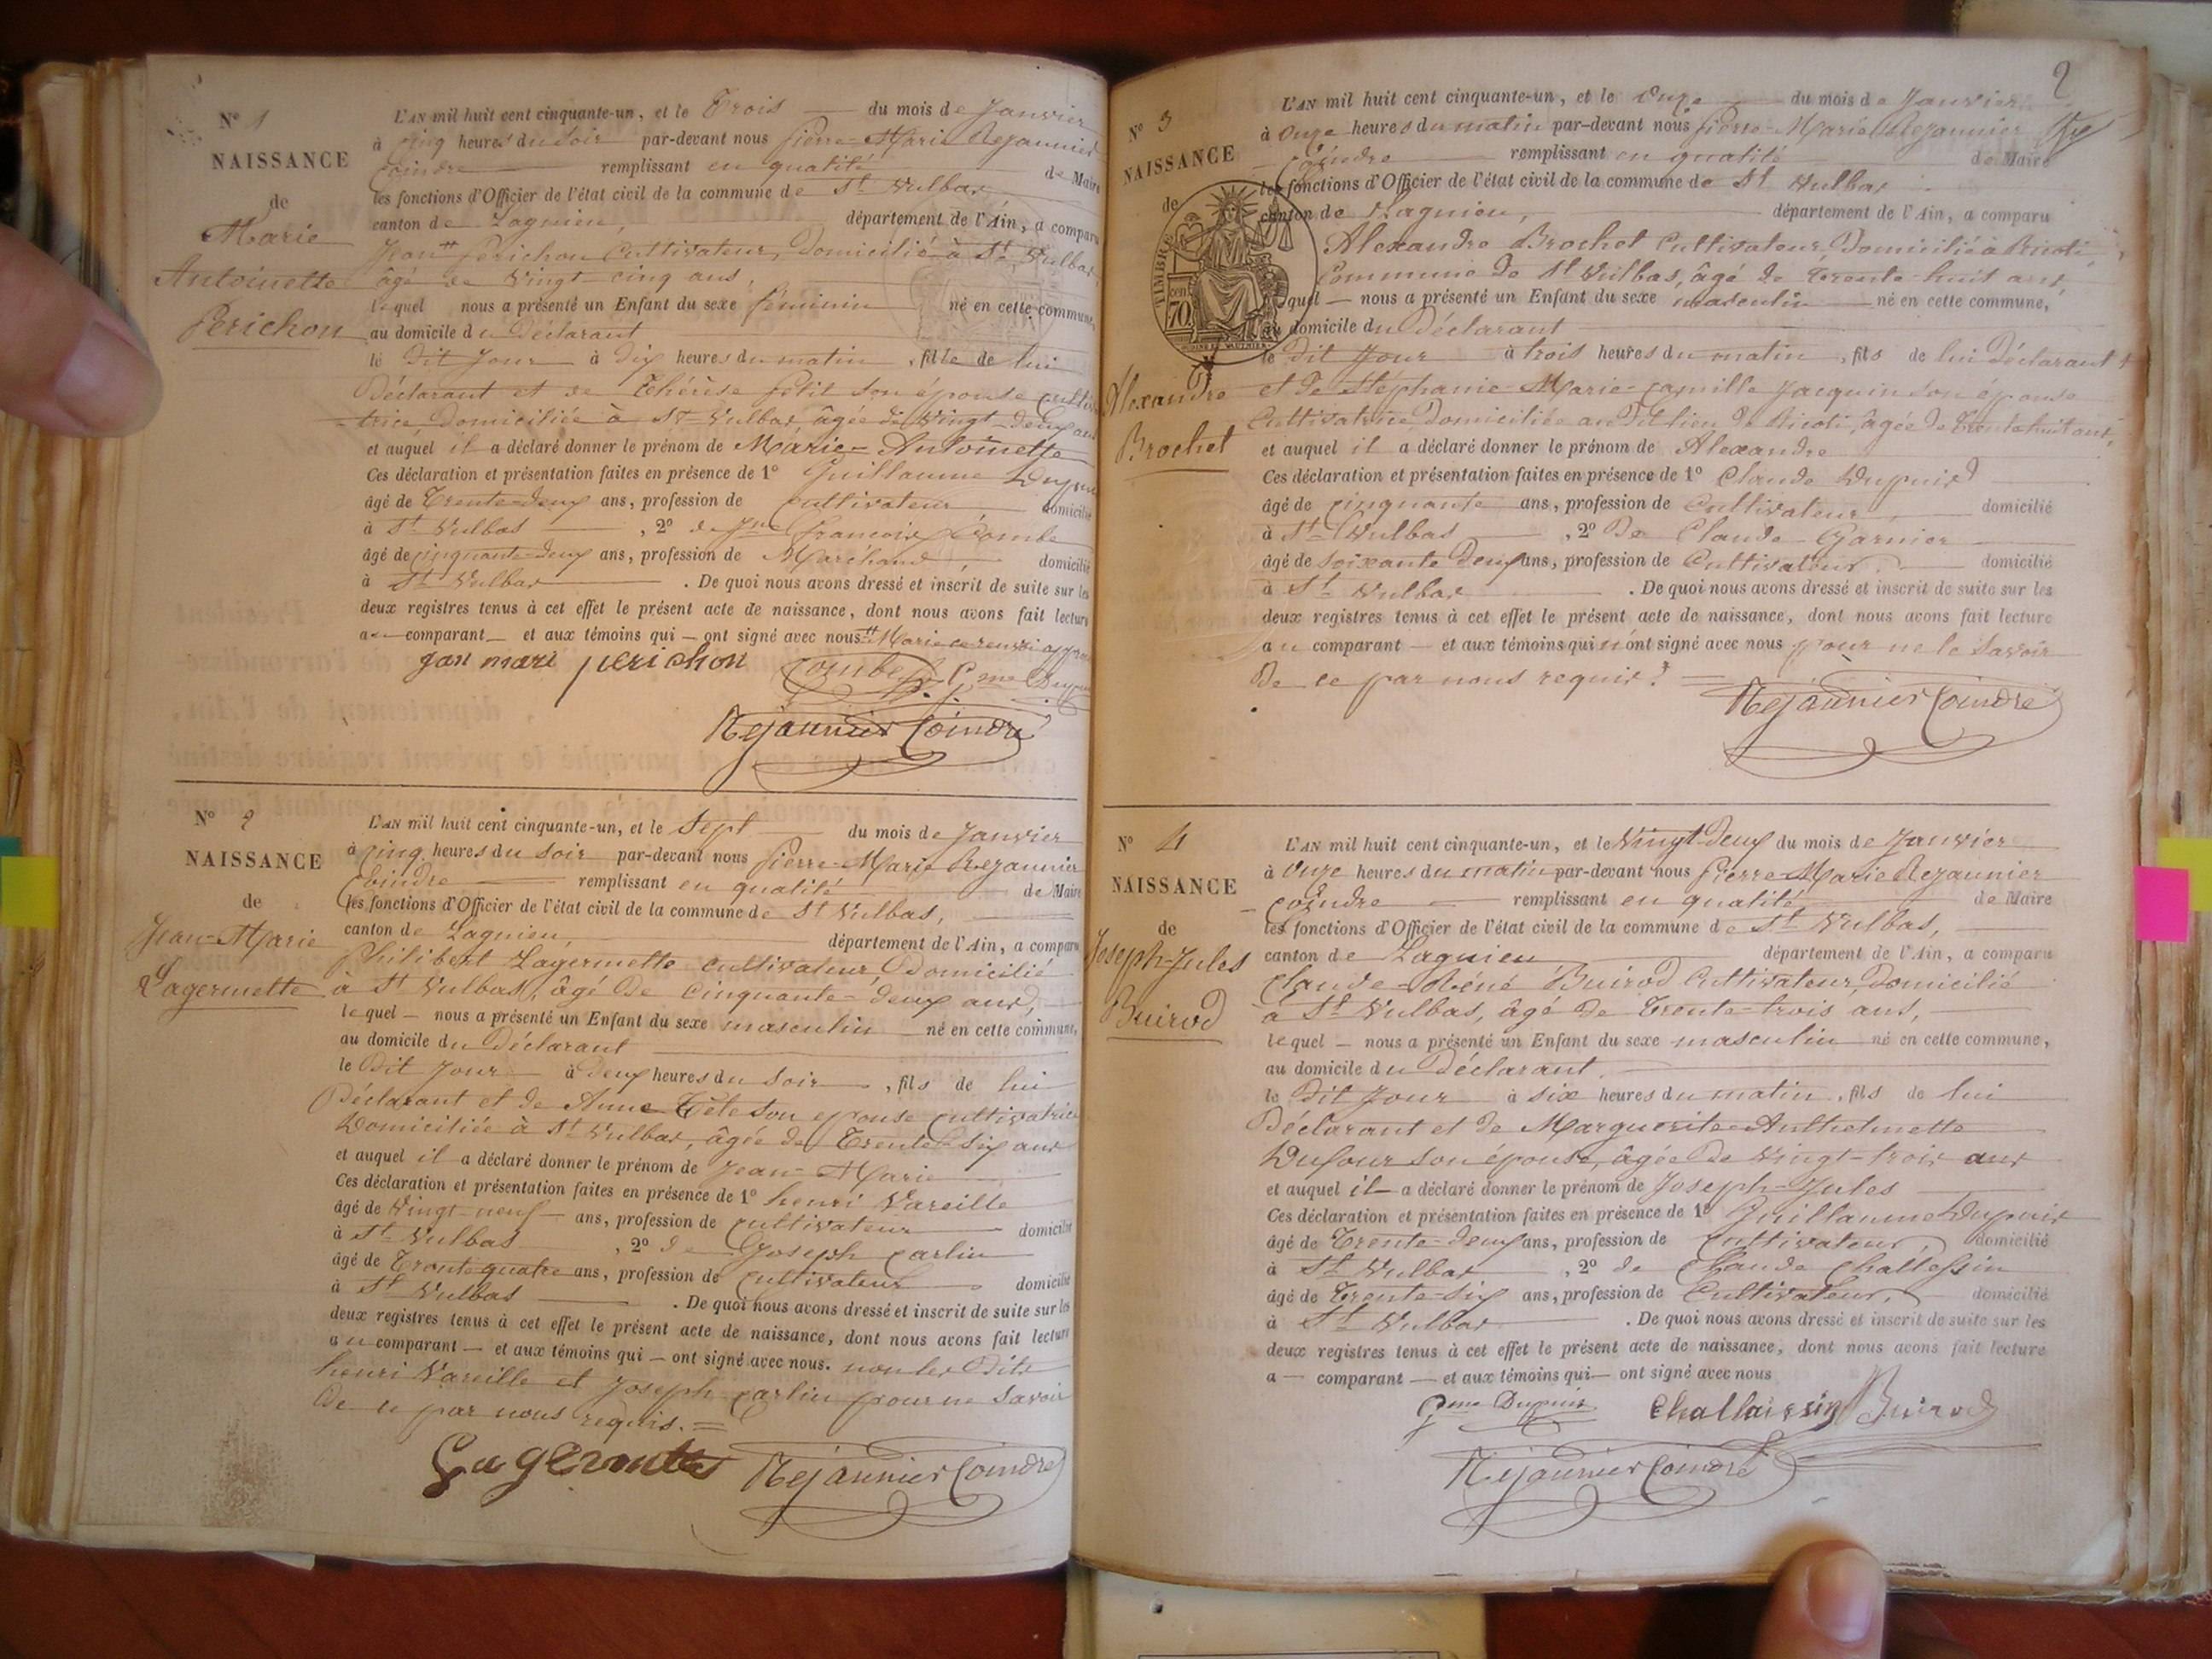 N° 1
NAISSANCE
de
Marie
Antoinette
Perichon
L'AN mil huit cent cinquante-un, et le Trois du mois de Janvier
à cinq heures du soir par-devant nous pierre-Marie Rejaunier
Coindre remplissant en qualité de Maire
les fonctions d'Officier de l'état civil de la commune de St Vulbas
canton de Lagnieu, département de l'Ain, a comparu
Jean # Perichon Cultivateur, Domicilié à St Vulbas,
âgé de Vingt cinq ans,
lequel nous a présenté un Enfant du sexe féminin né en cette commune,
au domicile du Déclarant
le dit Jour à Dix heures du matin, fille de lui
Déclarant et de Thérèse petit son épouse cultiva
-trice, Domiciliée à St Vulbas, âgée de Vingt-deux ans
et auquel il a déclaré donner le prénom de Marie-Antoinette
Ces déclaration et présentation faites en présence de 1° Guillaume Dupuis
âgé de Trente-deux ans, profession de cultivateur domicilié
à St Vulbas, 2° de Jn François Combe
âgé de cinquante-deux ans, profession de Maréchand domicilié
à St Vulbas. De quoi nous avons dressé et inscrit de suite sur les
deux registres tenus à cet effet le présent acte de naissance, dont nous avons fait lecture
au comparant et aux témoins qui ont signé avec nous # Marie ce renvoi appr
jan mari perichon Combe Gme Dupuis
Rejaunier Coindre
N° 2
NAISSANCE
de
Jean-Marie
Lagermette
L'AN mil huit cent cinquante-un, et le Sept du mois de Janvier
à cinq heures du soir par-devant nous pierre-Marie Rejaunier
Coindre remplissant en qualité de Maire
les fonctions d'Officier de l'état civil de la commune de St Vulbas,
canton de Lagnieu, département de l'Ain, a comparu
Philibert Lagermette cultivateur, Domicilié
à St Vulbas, âgé de cinquante-deux ans,
lequel nous a présenté un Enfant du sexe masculin né en cette commune,
au domicile du Déclarant
le dit Jour à deux heures du soir, fils de lui
Déclarant et de Anne Tête son epouse cultivatrice
Domiciliée à St Vulbas, âgée de Trente-six ans
et auquel il a déclaré donner le prénom de Jean-Marie
Ces déclaration et présentation faites en présence de 1° henri Vareille
âgé de Vingt-neuf ans, profession de cultivateur domicilié
à St Vulbas, 2° de Joseph Carlin
âgé de Trente quatre ans, profession de cultivateur domicilié
à St Vulbas. De quoi nous avons dressé et inscrit de suite sur les
deux registres tenus à cet effet le présent acte de naissance, dont nous avons fait lecture
au comparant et aux témoins qui ont signé avec nous. non les dits
henri Vareille et Joseph Carlin pour ne savoir
de ce par nous requis.
Lagermette Rejaunier Coindre
2
N° 3
NAISSANCE
de
TIMBRE
70
Alexandre
Brochet
L'AN mil huit cent cinquante-un, et le onze du mois de Janvier
à onze heures du matin par-devant nous pierre-Marie Rejaunier
Coindre remplissant en qualité de Maire
les fonctions d'Officier de l'état civil de la commune de St Vulbas
canton de Lagnieu, département de l'Ain, a comparu
Alexandre Brochet Cultivateur, Domicilié à
Commune de St Vulbas, âgé de trente-huit ans,
lequel nous a présenté un Enfant du sexe masculin né en cette commune,
au domicile du Déclarant
le dit Jour à trois heures du matin, fils de lui Déclarant
et de Stéphanie-Marie-Camille Jacquin son épouse
Cultivatrice Domiciliée au dit lieu de âgée de trente huit ans,
et auquel il a déclaré donner le prénom de Alexandre
Ces déclaration et présentation faites en présence de 1° Claude Dupuis
âgé de cinquante ans, profession de Cultivateur domicilié
à St Vulbas, 2° De Claude Garnier
âgé de soixante Deux ans, profession de Cultivateur domicilié
à St Vulbas. De quoi nous avons dressé et inscrit de suite sur les
deux registres tenus à cet effet le présent acte de naissance, dont nous avons fait lecture
au comparant et aux témoins qui n'ont signé avec nous pour ne le savoir
De ce par nous requis.
Rejaunier Coindre
N° 4
NAISSANCE
de
Joseph-Jules
Buirod
L'AN mil huit cent cinquante-un, et le Vingt-deux du mois de Janvier
à onze heures du matin par-devant nous pierre-Marie Rejaunier
Coindre remplissant en qualité de Maire
les fonctions d'Officier de l'état civil de la commune de St Vulbas,
canton de Lagnieu département de l'Ain, a comparu
Claude-Réné Buirod Cultivateur, Domicilié
à St Vulbas, âgé de Trente-trois ans,
lequel nous a présenté un Enfant du sexe masculin né en cette commune,
au domicile du Déclarant.
le dit Jour à six heures du matin, fils de lui
Déclarant et de Marguerite-Anthelmette
Dufour son épouse, âgée de vingt-trois ans
et auquel il a déclaré donner le prénom de Joseph-Jules
Ces déclaration et présentation faites en présence de 1° Guillaume Dupuis
âgé de Trente-deux ans, profession de cultivateur, domicilié
à St Vulbas, 2° de Claude Challessin
âgé de Trente-six ans, profession de Cultivateur, domicilié
à St Vulbas. De quoi nous avons dressé et inscrit de suite sur les
deux registres tenus à cet effet le présent acte de naissance, dont nous avons fait lecture
a comparant et aux témoins qui ont signé avec nous
Gme Dupuis Challaissin Buirod
Rejaunier Coindre